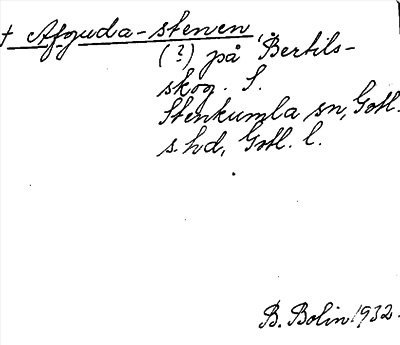 † Afguda-stenen,
(?) på Bertils-
skog. S.
Stenkumla sn, Gotl.
s. hd, Gotl. l.
B. Bolin 1932.